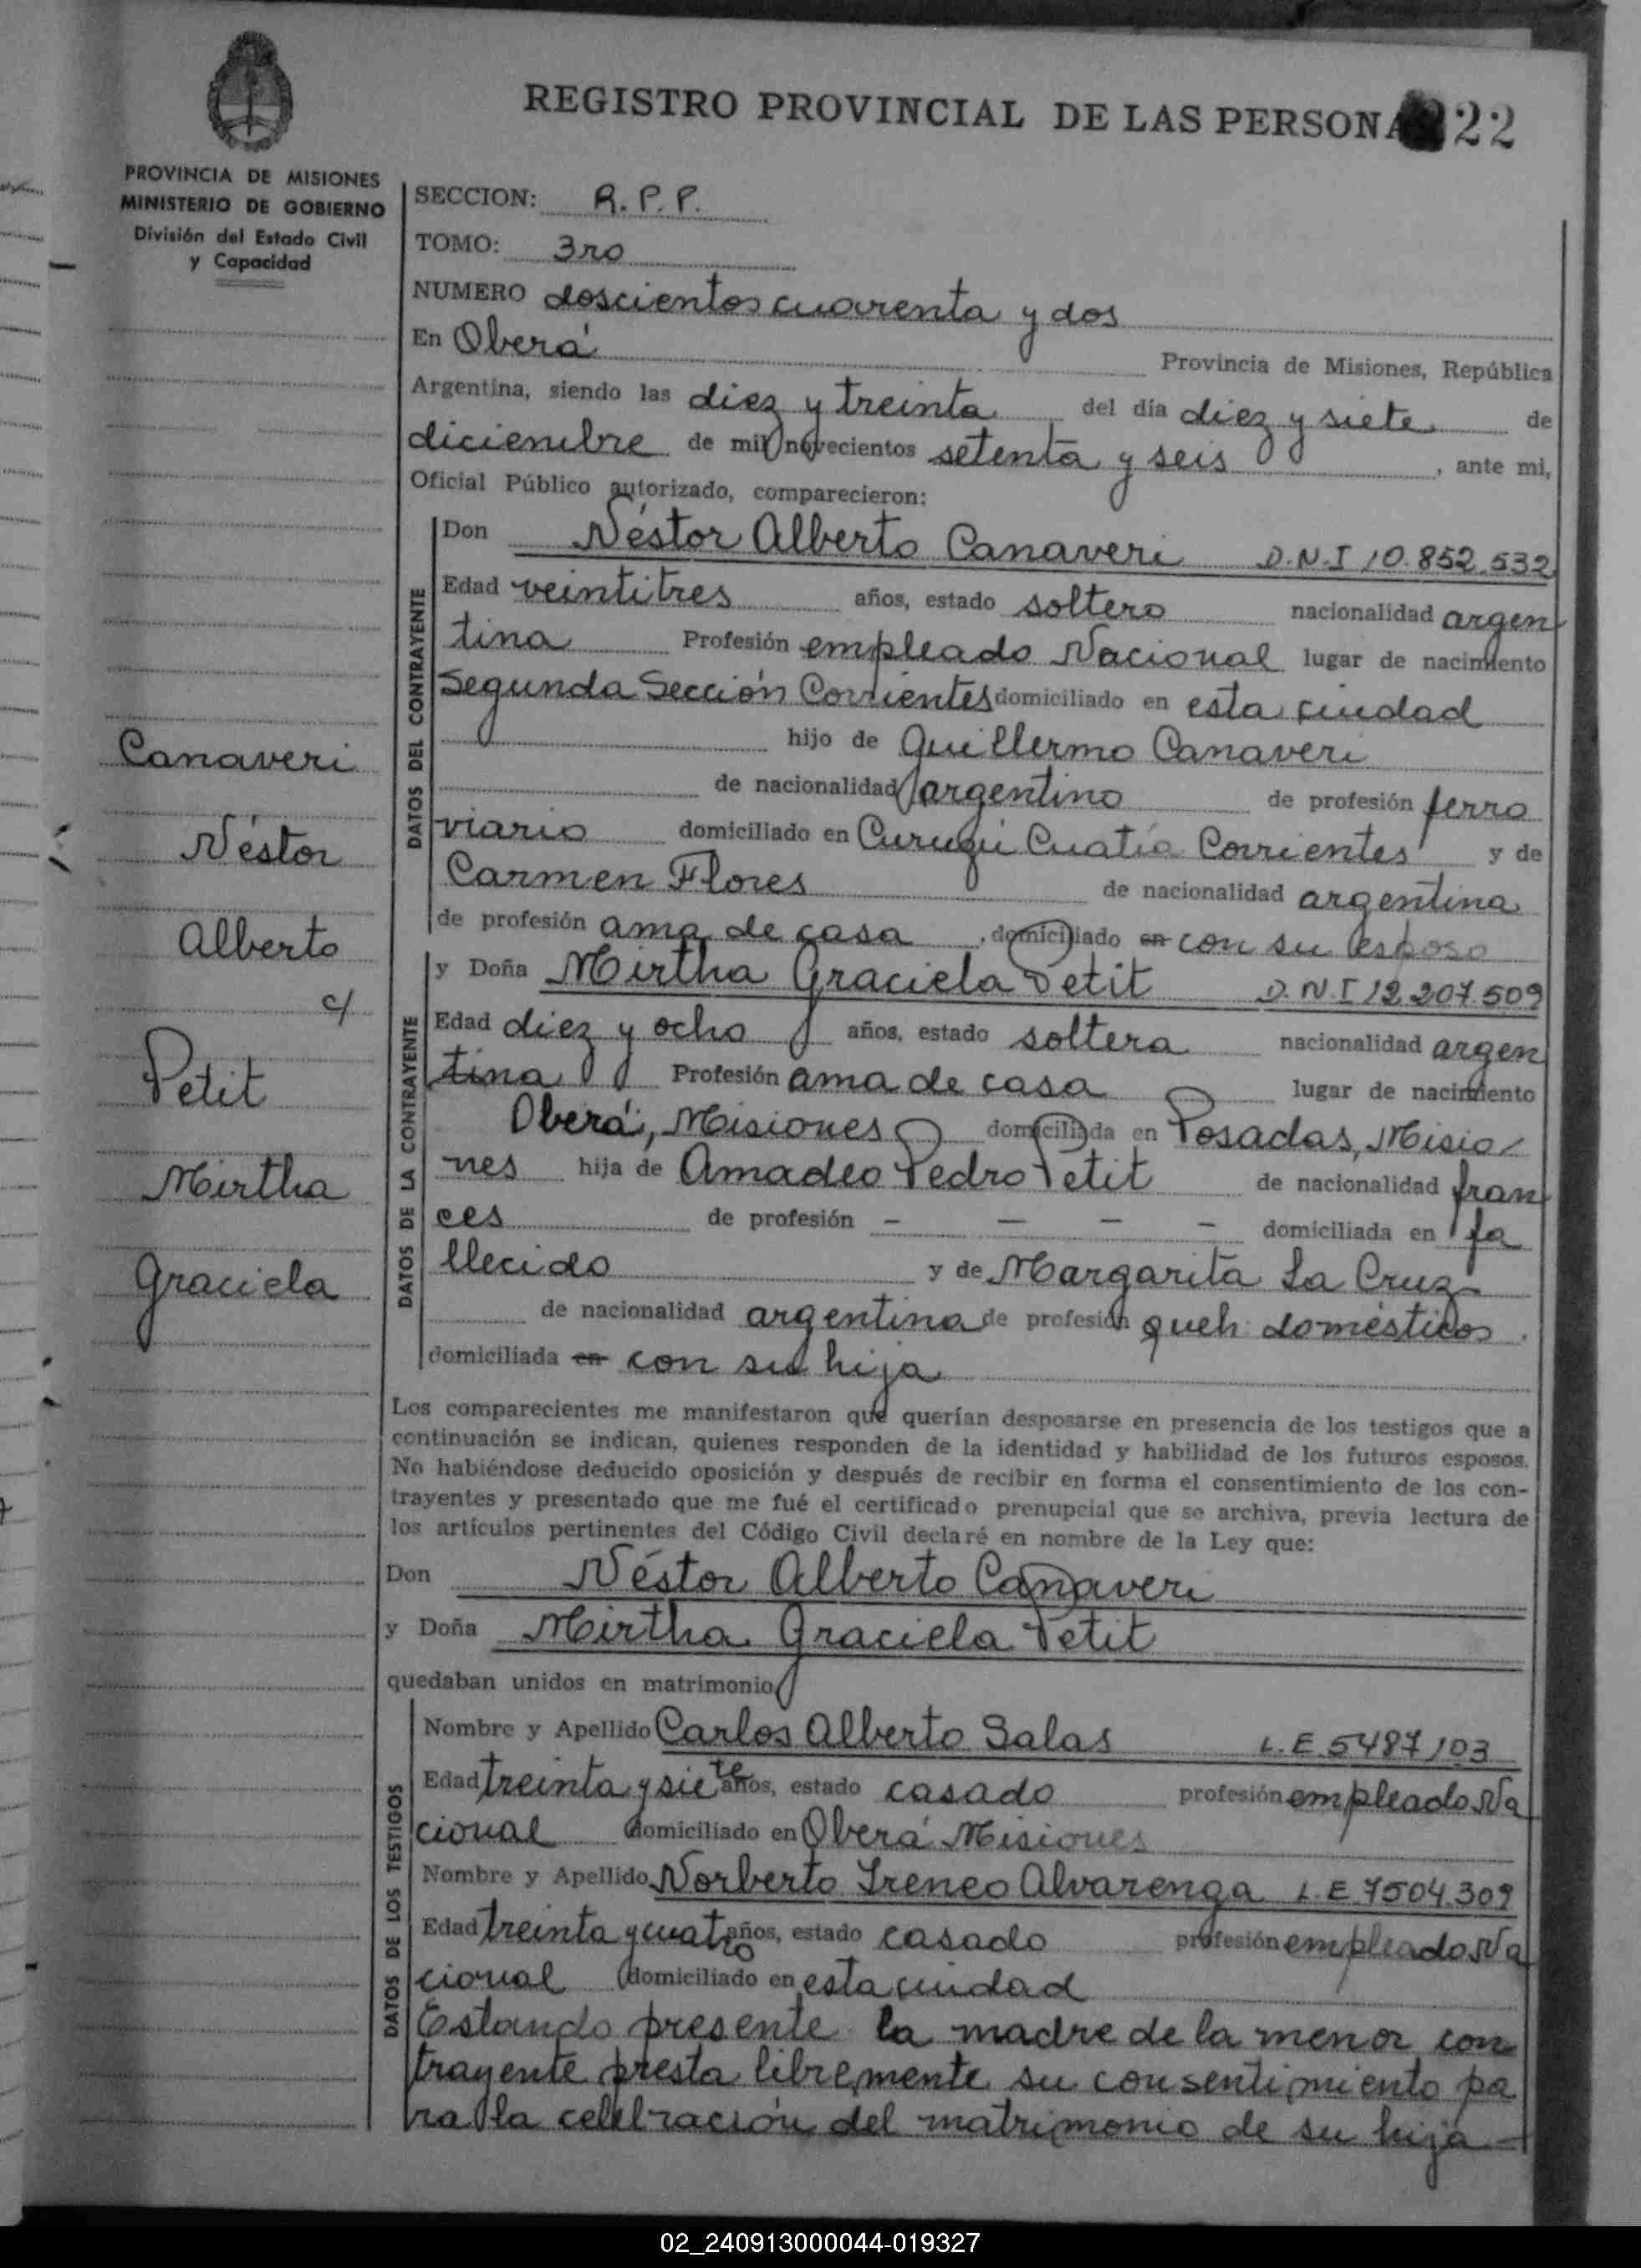 REGISTRO PROVINCIAL DE LAS PERSONA 22
PROVINCIA DE MISIONES
MINISTERIO DE GOBIERNO
División del Estado Civil
y Capacidad
SECCION: R.P.P.
TOMO: 3ro
NUMERO doscientos cuarenta y dos
En Oberá Provincia de Misiones, República
Argentina, siendo las diez y treinta del día diez y siete de
diciembre de mil novecientos setenta y seis, ante mi,
Oficial Público autorizado, comparecieron:
DATOS DEL CONTRAYENTE
Don Néstor Alberto Canaveri D.N.I 10.852.532
Edad veintitres años, estado soltero nacionalidad argen
tina Profesión empleado Nacional lugar de nacimiento
Segunda Sección Corrientes domiciliado en esta ciudad
hijo de Guillermo Canaveri
de nacionalidad argentino de profesión ferro
viario domiciliado en Curuzú Cuatía Corrientes y de
Carmen Flores de nacionalidad argentina
de profesión ama de casa, domiciliado en con su esposo
DATOS DE LA CONTRAYENTE
y Doña Mirtha Graciela Petit D.N.I 12.207.509
Edad diez y ocho años, estado soltera nacionalidad argen
tina Profesión ama de casa lugar de nacimiento
Oberá, Misiones domiciliada en Posadas, Misio
nes hija de Amadeo Pedro Petit de nacionalidad fran
ces de profesión - - - - domiciliada en fa
llecido y de Margarita La Cruz
de nacionalidad argentina de profesión queh domésticos.
domiciliada en con su hija
Canaveri
Néstor
Alberto
c/
Petit
Mirtha
Graciela
Los comparecientes me manifestaron que querían desposarse en presencia de los testigos que a
continuación se indican, quienes responden de la identidad y habilidad de los futuros esposos.
No habiéndose deducido oposición y después de recibir en forma el consentimiento de los con-
trayentes y presentado que me fué el certificado prenupcial que se archiva, previa lectura de
los artículos pertinentes del Código Civil declaré en nombre de la Ley que:
Don Néstor Alberto Canaveri
y Doña Mirtha Graciela Petit
quedaban unidos en matrimonio
DATOS DE LOS TESTIGOS
Nombre y Apellido Carlos Alberto Salas L.E 5487103
Edad treinta y siete años, estado casado profesión empleado Na
cional domiciliado en Oberá Misiones
Nombre y Apellido Norberto Ireneo Alvarenga L.E 7504.309
Edad treinta y cuatro años, estado casado profesión empleado Na
cional domiciliado en esta ciudad
Estando presente la madre de la menor con
trayente presta libremente su consentimiento pa
ra la celebración del matrimonio de su hija
02_240913000044-019327